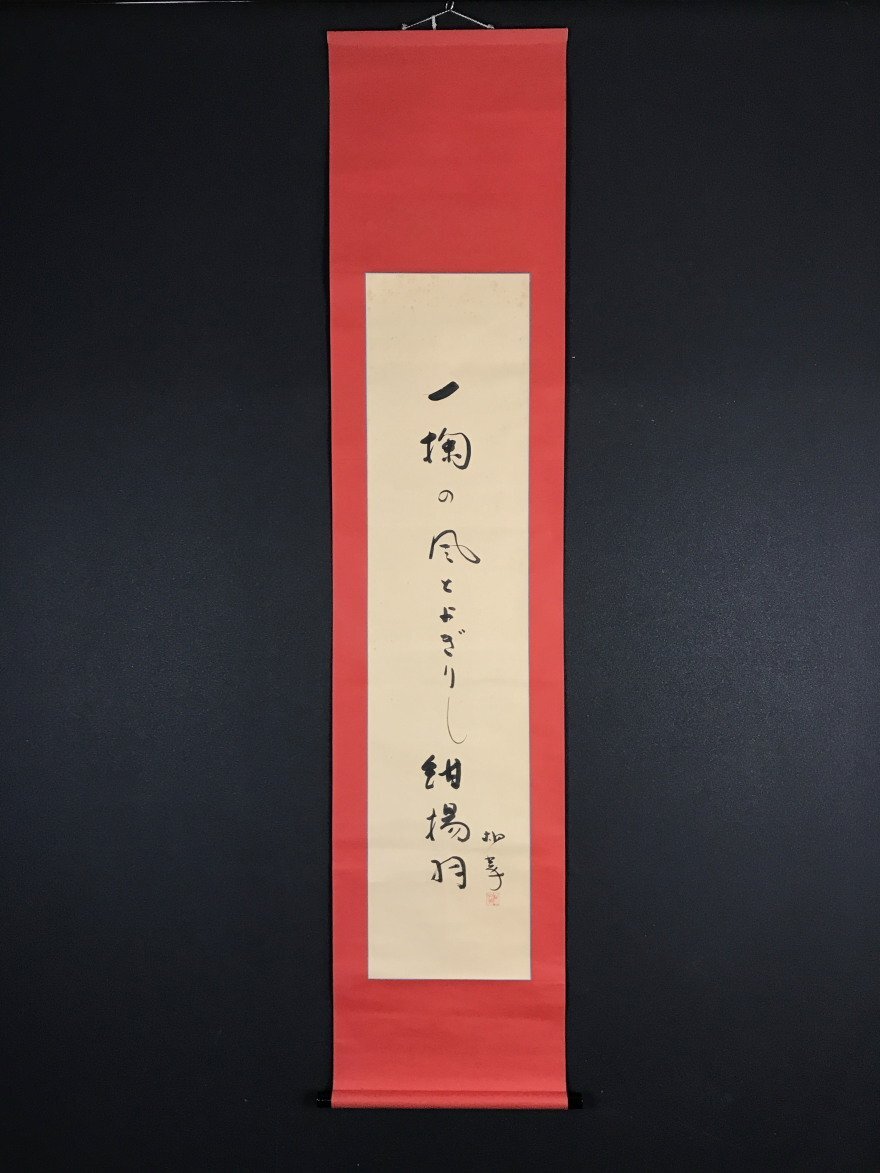 一掬の風とよぎりし紺揚羽